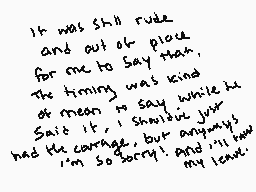 It was still rude
and out of place
for me to say that.
The timing was kind
of mean to say while he
said it, I should've just
had the courage, but anyways
I'm so sorry! And I'll take
my leave.